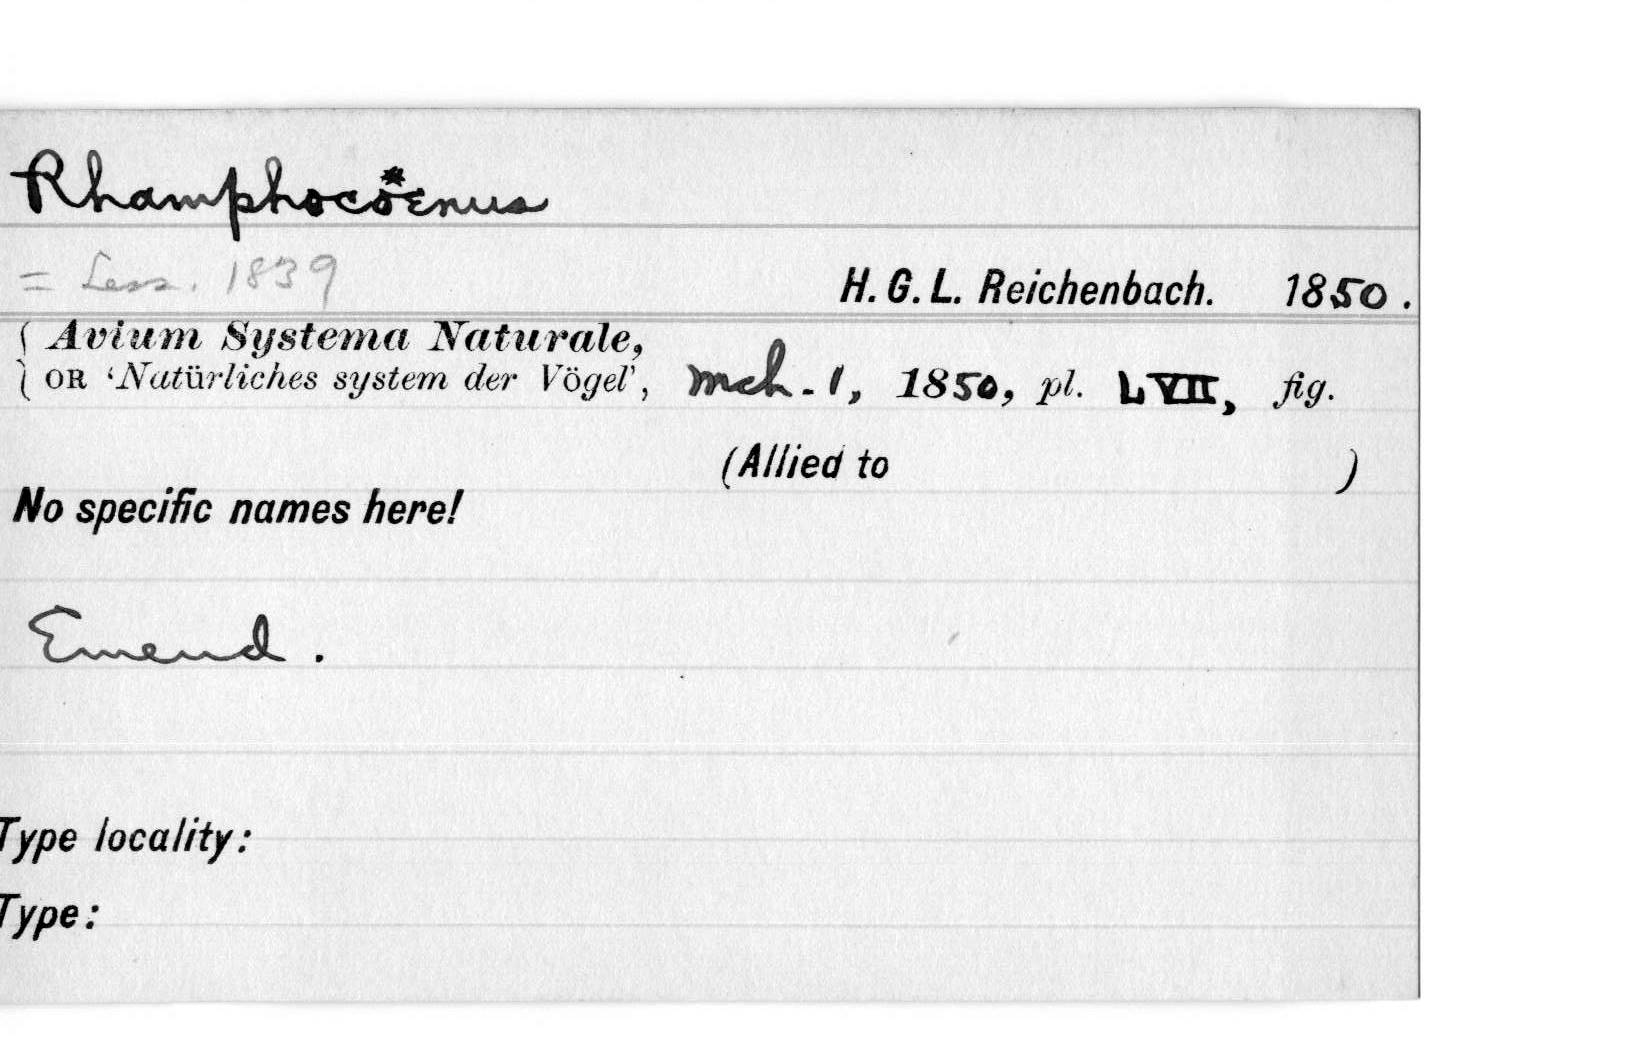 Rhamphocöenus
= Less. 1839
H. G. L. Reichenbach. 1850.
Avium Systema Naturale,
OR 'Natürliches system der Vögel', Mch. 1, 1850, pl. LVII, fig.
(Allied to )
No specific names here!
Emend.
Type locality:
Type: